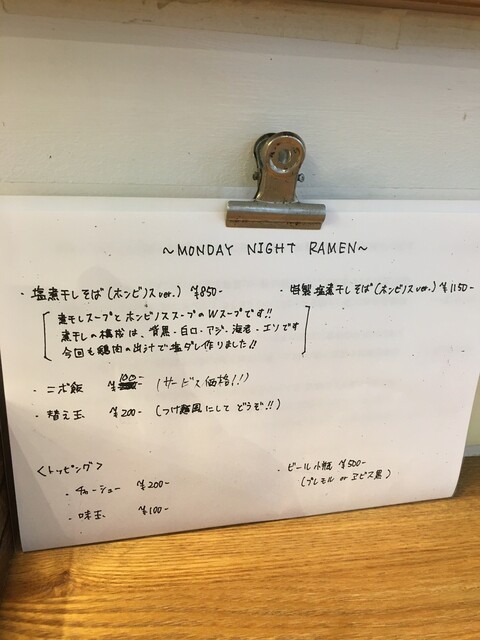 ~MONDAY NIGHT RAMEN~
・塩煮干しそば(ホンビノスver.) ¥850-
・特製塩煮干しそば(ホンビノスver.) ¥1150-
煮干しスープとホンビノススープのWスープです!!
煮干しの構成は、背黒・白口・アジ・海老・エソです
今回も鶏肉の出汁で塩ダレ作りました!!
・ニボ飯 ¥100- (サービス価格!!)
・替え玉 ¥200- (つけ麺風にして どうぞ!!)
<トッピング>
・チャーシュー ¥200-
・味玉 ¥100-
・ビール小瓶 ¥500-
(プレモル or ヱビス黒)